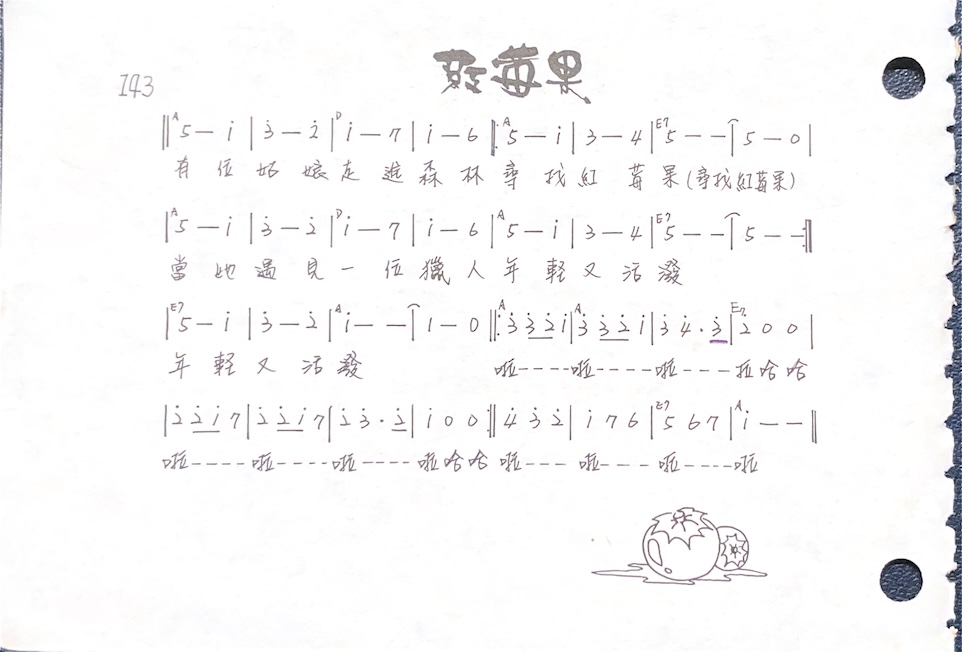 143
敲莓果
‖ᴬ5 — i̇ | 3̇ — 2̇ |ᴰi̇ — 7 | i̇ — 6 ‖:ᴬ5 — i | 3 — 4 |ᴱ⁷5 — — | 5 — 0 |
有位姑娘走進森林尋找紅莓果(尋找紅莓果)
|ᴬ5 — i̇ | 3̇ — 2̇ |ᴰi̇ — 7 | i̇ — 6 |ᴬ5 — i | 3 — 4 |ᴱ⁷5 — — | 5 — — :‖
當她遇見一位獵人年輕又活潑
|ᴱ⁷5 — i̇ | 3̇ — 2̇ |ᴬi̇ — — | 1 — 0 ‖:ᴬ3̇ 3̇ 2̇ i |ᴬ3̇ 3̇ 2̇ i | 3̇ 4̇ · 3̇ |ᴱ⁷2̇ 0 0 |
年輕又活潑 啦----啦----啦---拉哈哈
| 2̇ 2̇ i̇ 7 | 2̇ 2̇ i̇ 7 | 2̇ 3̇ · 2̇ | i̇ 0 0 :‖ 4̇ 3̇ 2̇ | i̇ 7 6 |ᴱ⁷5 6 7 |ᴬi̇ — — ‖
啦----啦----啦----啦哈哈 啦--- 啦--- 啦----啦